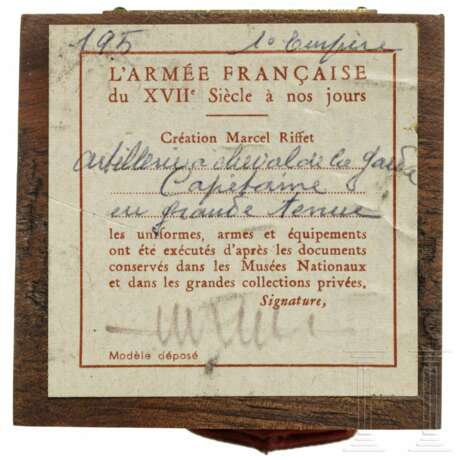 195 1º Empire
L'ARMÉE FRANÇAISE
du XVIIe Siècle à nos jours
Création Marcel Riffet
artillerie a cheval de la garde
Capitaine
en grande tenue
les uniformes, armes et équipements
ont été exécutés d'après les documents
conservés dans les Musées Nationaux
et dans les grandes collections privées.
Signature,
Modèle déposé